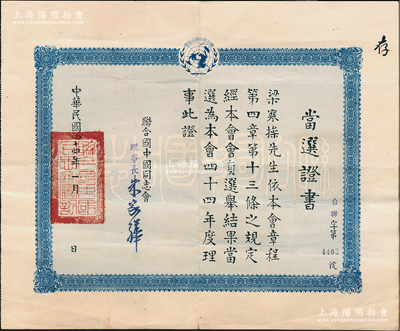 上海陽明拍賣
www.yangmingauction.com
存
當選證書
台聯字第
4403
號
梁寒操先生依本會章程
第四章第十三條之規定
經本會會員選舉結果當
選為本會四十四年度理
事此證
聯合國中國同志會
理事長朱家驊
中華民國四十四年一月
日
上海陽明拍賣